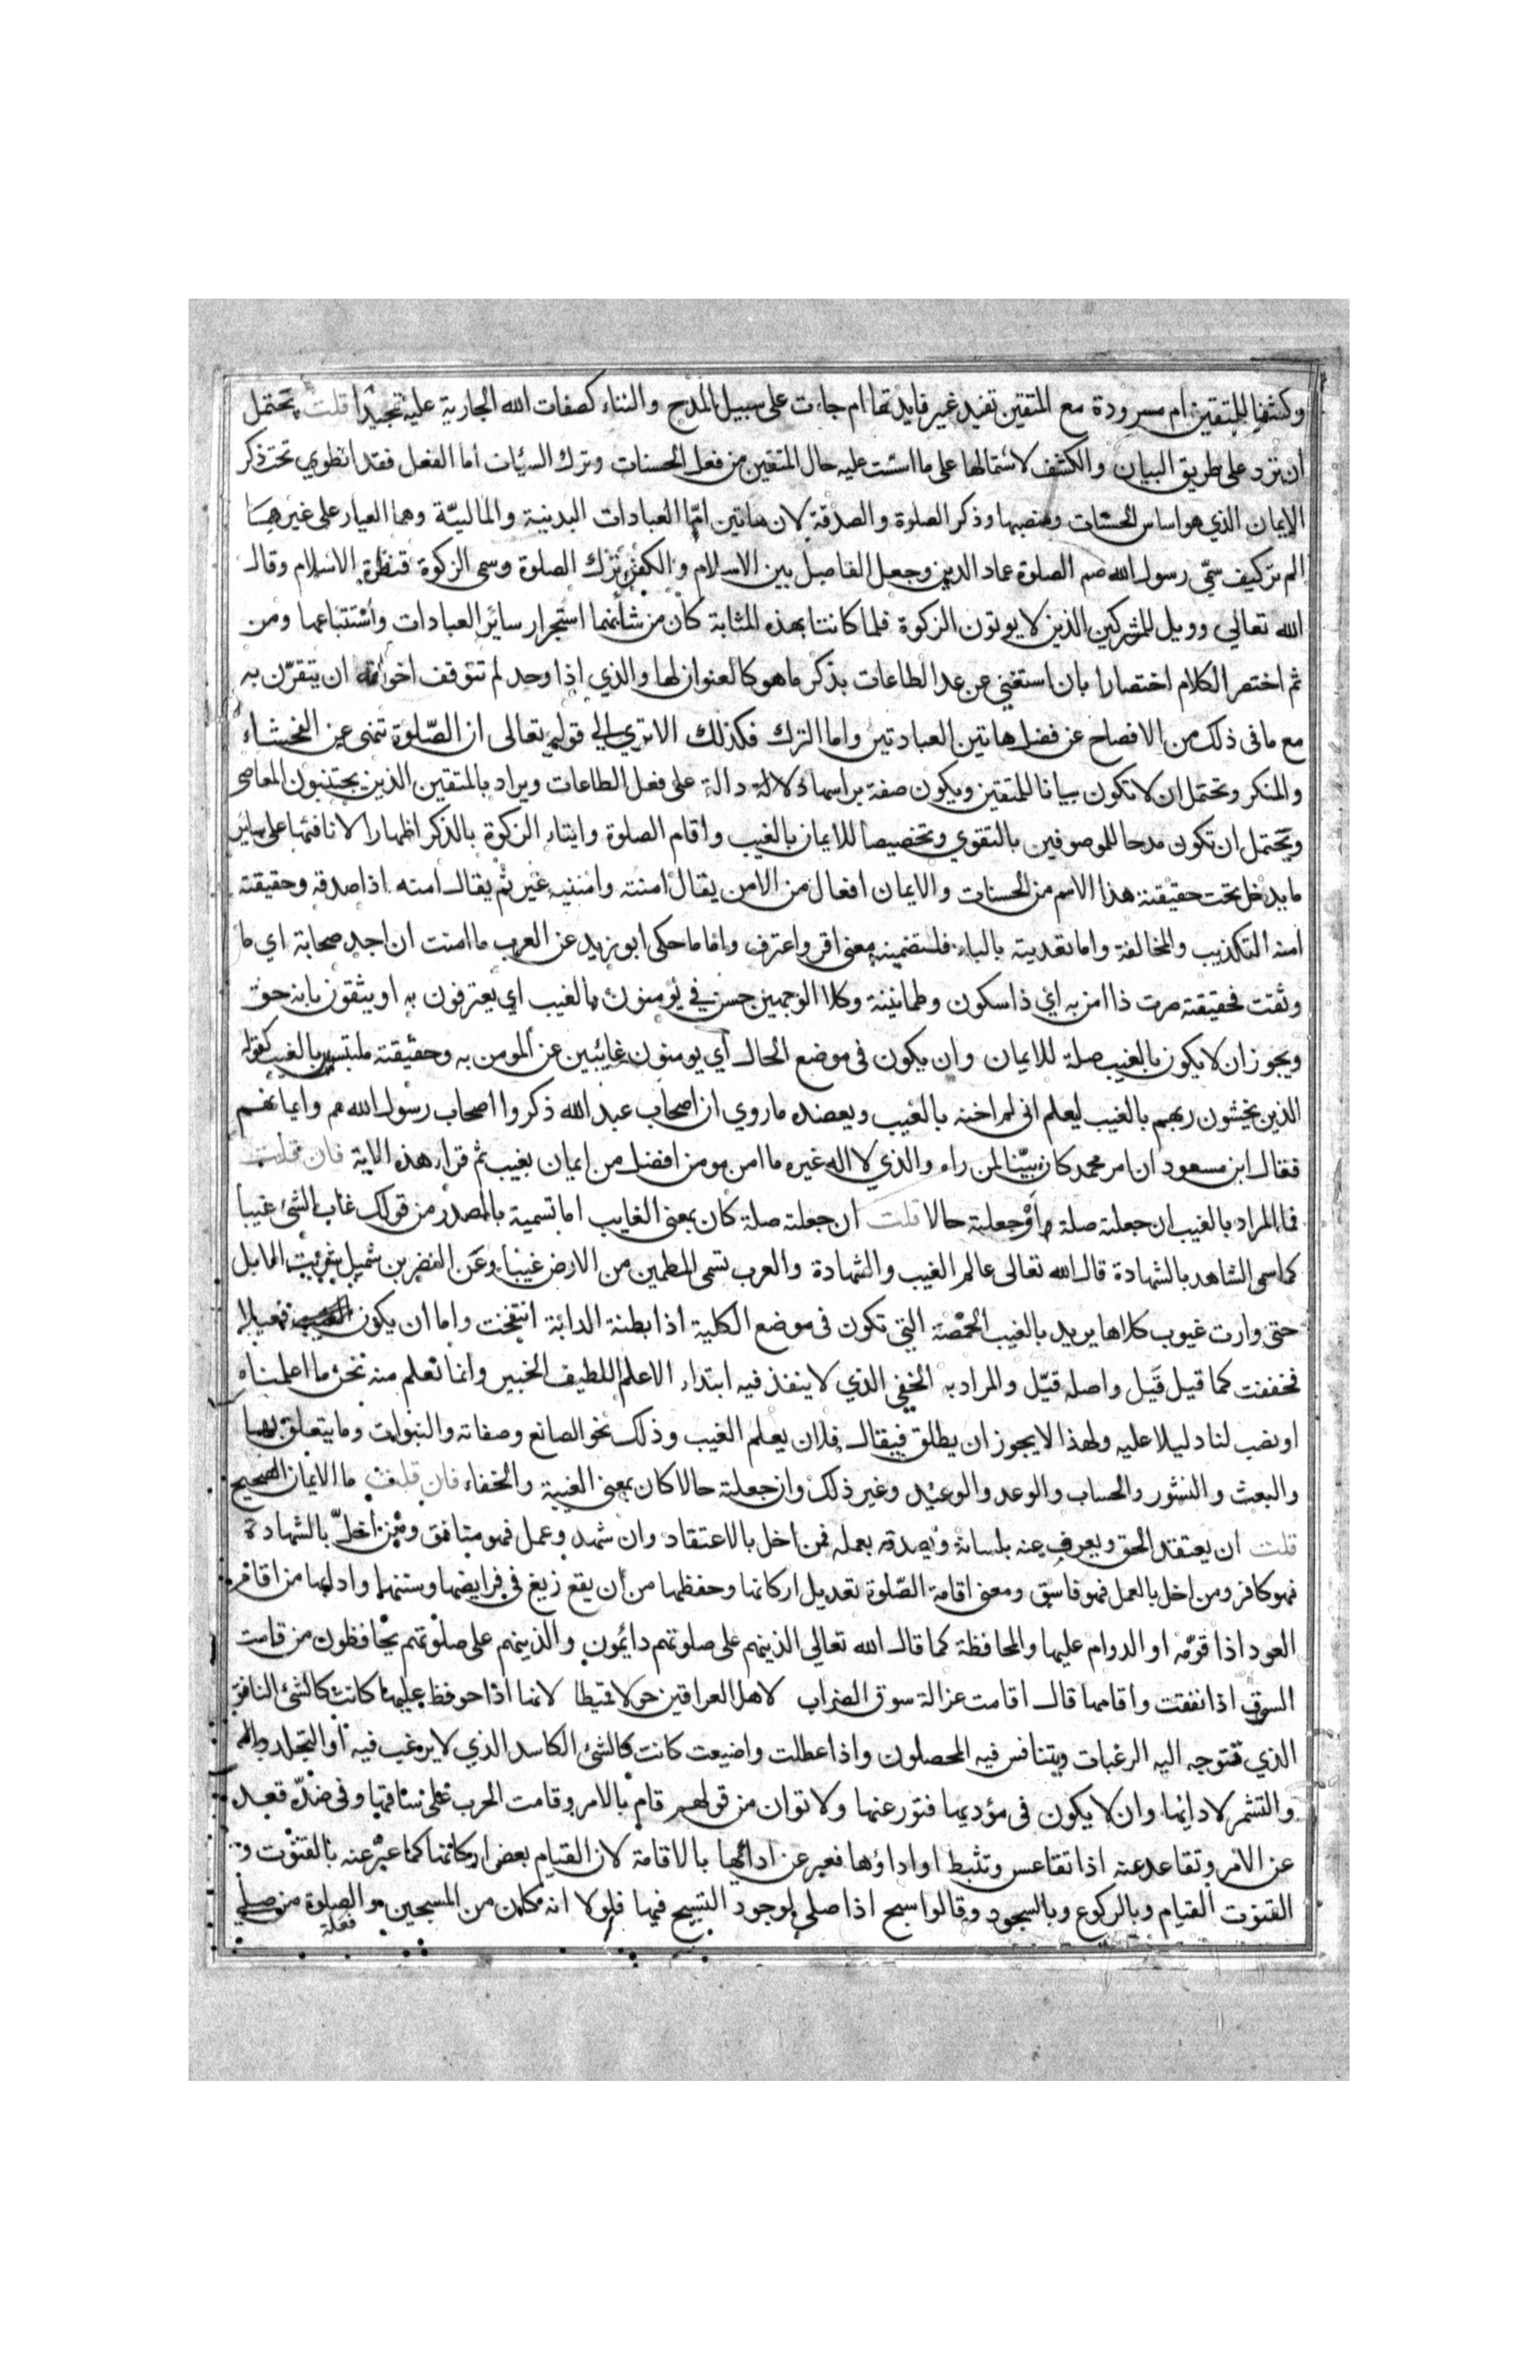 وكشفا للمتقين ام مسرودة مع المتقين تفيد غير فايدتها ام جاءت على سبيل المدح والثناء كصفات الله الجارية عليه تمجيدا قلت يحتمل
ان ترد على طريق البيان والكشف لاشتمالها على ما اسست عليه حال المتقين من فعل الحسنات وترك السيئات أما الفعل فقد انطوي تحت ذكر
الإيمان الذي هو اساس الحسنات ومنصبها وذكر الصلوة والصدقة لان هاتين امّا العبادات البدنية والماليّة وهما العيار على غيرهما
الم تر كيف سمّى رسول الله صم الصلوة عماد الدين وجعل الفاصل بين الاسلام والكفر ترك الصلوة وسمى الزكوة قنطرة الاسلام وقال
الله تعالي وويل للمشركين الذين لا يوتون الزكوة فلما كانتا بهذه المثابة كان من شانهما استجرار سائر العبادات وأستتباعها ومن
ثم اختصر الكلام اختصارا بان استغني عن عد الطاعات بذكر ما هو كالعنوان لها والذي إذا وجد لم تتوقف اخواته ان يتقرّن به
مع ما فى ذلك من الافصاح عن فضل هاتين العبادتين واما الترك فكذلك الا تري الي قوله تعالى ان الصّلوة تنهى عن الفحشاء
والمنكر وتحتمل ان لا تكون بيانا للمتقين ويكون صفة براسها دالة على فعل الطاعات ويراد بالمتقين الذين يجتنبون المعاصى
ويحتمل ان تكون مدحا للموصوفين بالتقوي وتخصيصا للايمان بالغيب واقام الصلوة وايتاء الزكوة بالذكر اظهارا لانافتها على سائر
ما يدخل تحت حقيقة هذا الاسم من الحسنات والايمان افعال من الامن يقال امنته وامننيه غير ثم يقال امنه اذا صدقه وحقيقته
امنه التكذيب والمخالفة واما تعديته بالباء فلتضمينه معنى اقر واعترف واما ما حكى ابو زيد عن العرب ما امنت ان اجد صحابة اي ما
وثقت فحقيقته صرت ذا امن به أي ذا سكون وطمانينة وكلا الوجهين حسن في يؤمنون بالغيب اي يعترفون به او يثقون بانه حق
ويجوز ان لا يكون بالغيب صلة للايمان وان يكون فى موضع الحال أي يومنون غائبين عن المومن به وحقيقته ملتبسين بالغيب كقوله
الذين يخشون ربهم بالغيب ليعلم انى لم اخنه بالغيب ويعضده ما روي ان اصحاب عبد الله ذكروا اصحاب رسول الله صم وايمانهم
فقال ابن مسعود ان امر محمد كان بيّنا لمن راه والذي لا اله غيره ما امن مومن افضل من إيمان بغيب ثم قراء هذه الاية فان قلت
فما المراد بالغيب ان جعلته صلة وأو جعلته حالا قلت ان جعلته صلة كان بمعنى الغايب اما تسمية بالمصدر من قولك غاب الشئ غيبا
كما سمى الشاهد بالشهادة قال الله تعالى عالم الغيب والشهادة والعرب تسمى المطمين من الارض غيبا وعن النضر بن شميل شربت الابل
حتى وارت غيوب كلاها يريد بالغيب الخمصة التي تكون فى موضع الكلية اذا بطنة الدابة انتفخت واما ان يكون فعيلا
فخففت كما قيل قَيل واصله قيّل والمراد به الخفي الذي لا ينفذ فيه ابتداء الا علم اللطيف الخبير وانما نعلم منه نحن ما اعلمناه
او نصب لنا دليلا عليه ولهذا لا يجوز ان يطلق فيقال فلان يعلم الغيب وذلك نحو الصانع وصفاته والنبوات وما يتعلق بها
والبعث والنشور والحساب والوعد والوعيد وغير ذلك وان جعلته حالا كان بمعنى الغيبة والخفاء فان قلت ما الايمان الصحيح
قلت ان يعتقد الحق ويعرف عنه بلسانه ويصدقه بعمله فمن اخل بالاعتقاد وان شهد وعمل فهو منافق ومن اخلّ بالشهادة
فهو كافر ومن اخل بالعمل فهو فاسق ومعنى اقامة الصّلوة تعديل اركانها وحفظها من أن يقع زيغ في فرايضها وسننها وادابها من اقام
العود اذا قوّمه او الدوام عليها والمحافظة كما قال الله تعالي الذينهم على صلوتهم دائمون والذينهم على صلوتهم يحافظون من قامت
السوق اذا نفقت واقامها قال اقامت غزالة سوق الضراب لاهل العراقين حولا قيطا لانها اذا حوفظ عليها كانت كالشئ النافق
الذي تتوجه اليه الرغبات ويتنافس فيه المحصلون واذا عطلت واضيعت كانت كالشئ الكاسد الذي لا يرغب فيه او التجلد
والتشمر لادائها وان لا يكون فى مؤديها فتور عنها ولا توان من قولهم قام بالامر وقامت الحرب على ساقها وفى ضدّه قعد
عن الامر وتقاعد عنه اذا تقاعس وتثبط او اداؤها فعبر عن ادائها بالاقامة لان القيام بعض اركانها كما عبّر عنه بالقنوت و
القنوت القيام وبالركوع وبالسجود وقالوا سبح اذا صلي لوجود التسبيح فيها فلولا انه كان من المسبحين والصلوة فعلة من صلي